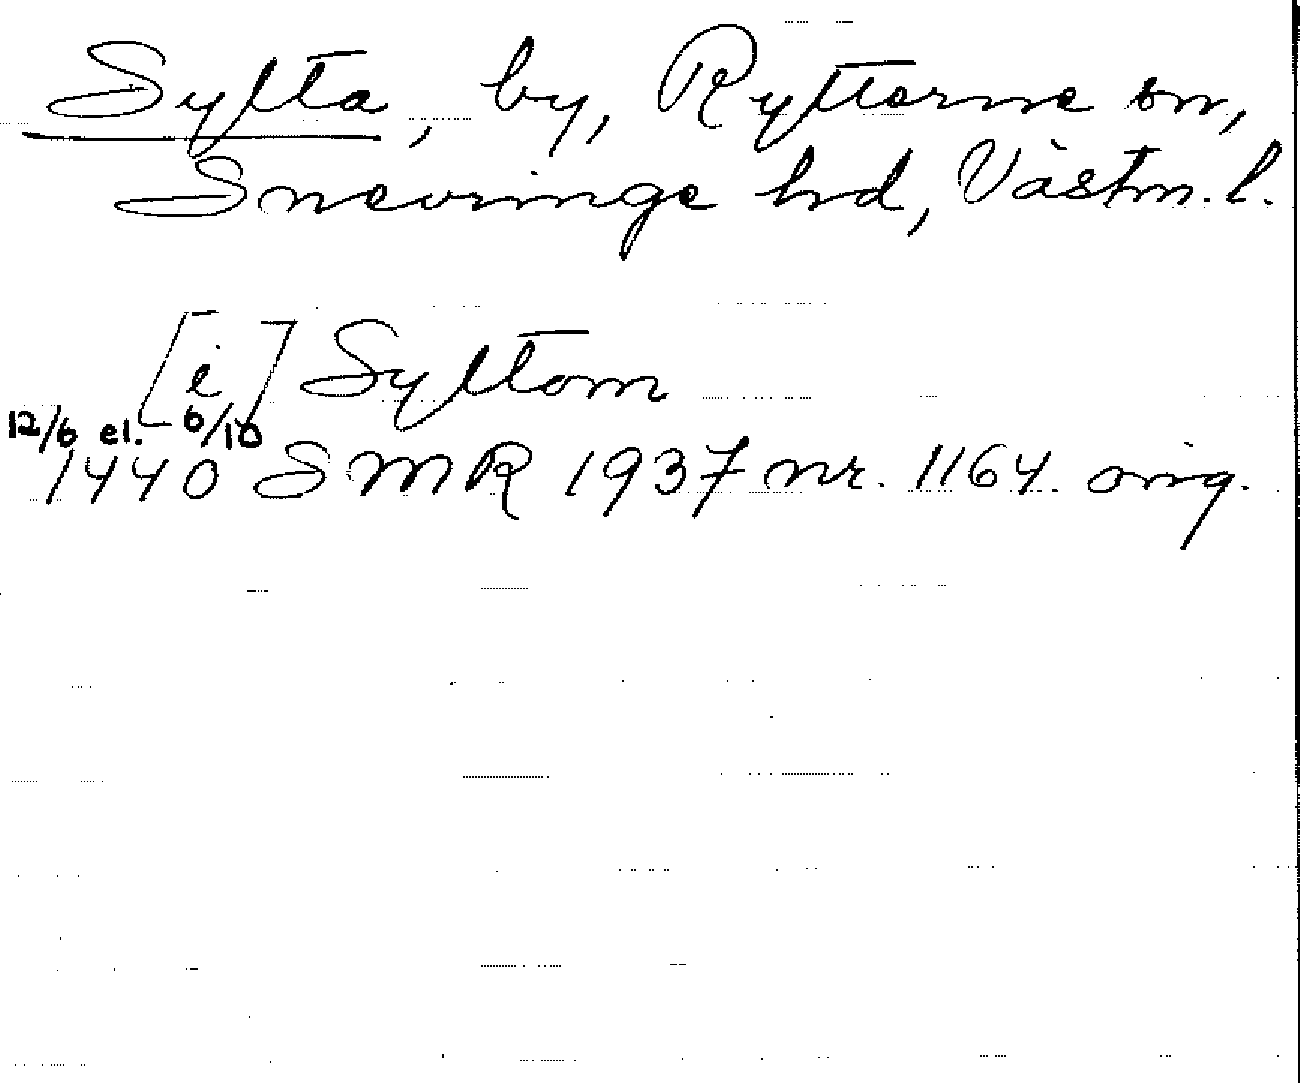 Sylta, by, Rytterne sn,
Snevringe hd, Västm. l.
[i] Syltom
12/6 el. 6/10
1440 SMR 1937 nr. 1164. orig.